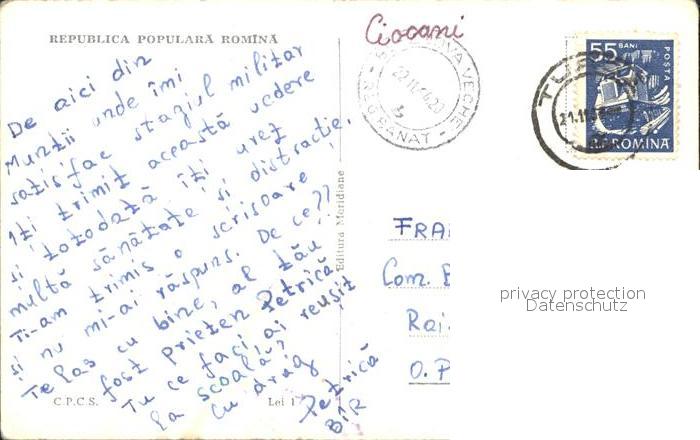 REPUBLICA POPULARĂ ROMÎNĂ
De aici din
Munții unde îmi
satisfac stagiul militar
Iți trimit această vedere
și totodată îți urez
multă sănătate și distracție.
Ti-am trimis o scrisoare
și nu mi-ai răspuns. De ce??
Te las cu bine, al tău
fost prieten Petrică
Tu ce faci, ai reușit
la școală?
cu drag
Petrică
BÎR
C.P.C.S.
Lei 1
Editura Meridiane
Ciocani
VA VECHE
22.11
REG BANAT
TU
21.11
55 BANI
POSTA
R.P.ROMINA
FRA
Com.
Rai.
O. P
privacy protection
Datenschutz